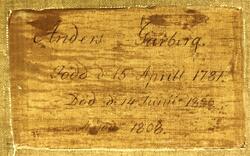 Anders Farberg.
Född d 15 Aprill 1781.
Död d 14 Junii
1808.